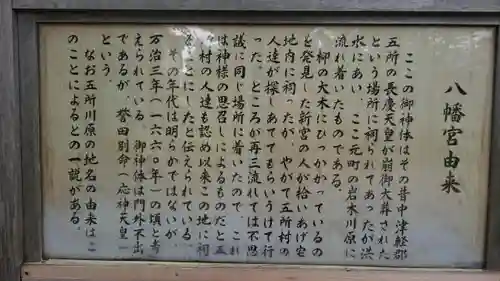 八幡宮由来
ここの御神体はその昔中津軽郡
五所の長慶天皇が崩御大葬された
という場所に祠られてあったが洪
水にあい、ここ元町の岩木川原に
流れ着いたものである。
柳の大木にひっかかっているの
を発見した新宮の人が拾いあげ宅
地内に祠ったが、やがて五所村の
人達が探しあててもらいうけて行
った。ところが再三流れては不思
議に同じ場所に着いたので、これ
は神様の思召しによるものだと五
村の人達も認め以来この地に祠
ることにしたと伝えられている。
その年代は明らかではないが、
万治三年(一六六〇年)の頃と考
えられている。御神体は門外不出
であるが、誉田別命(応神天皇)
という。
なお五所川原の地名の由来はこ
のことによるとの一説がある。